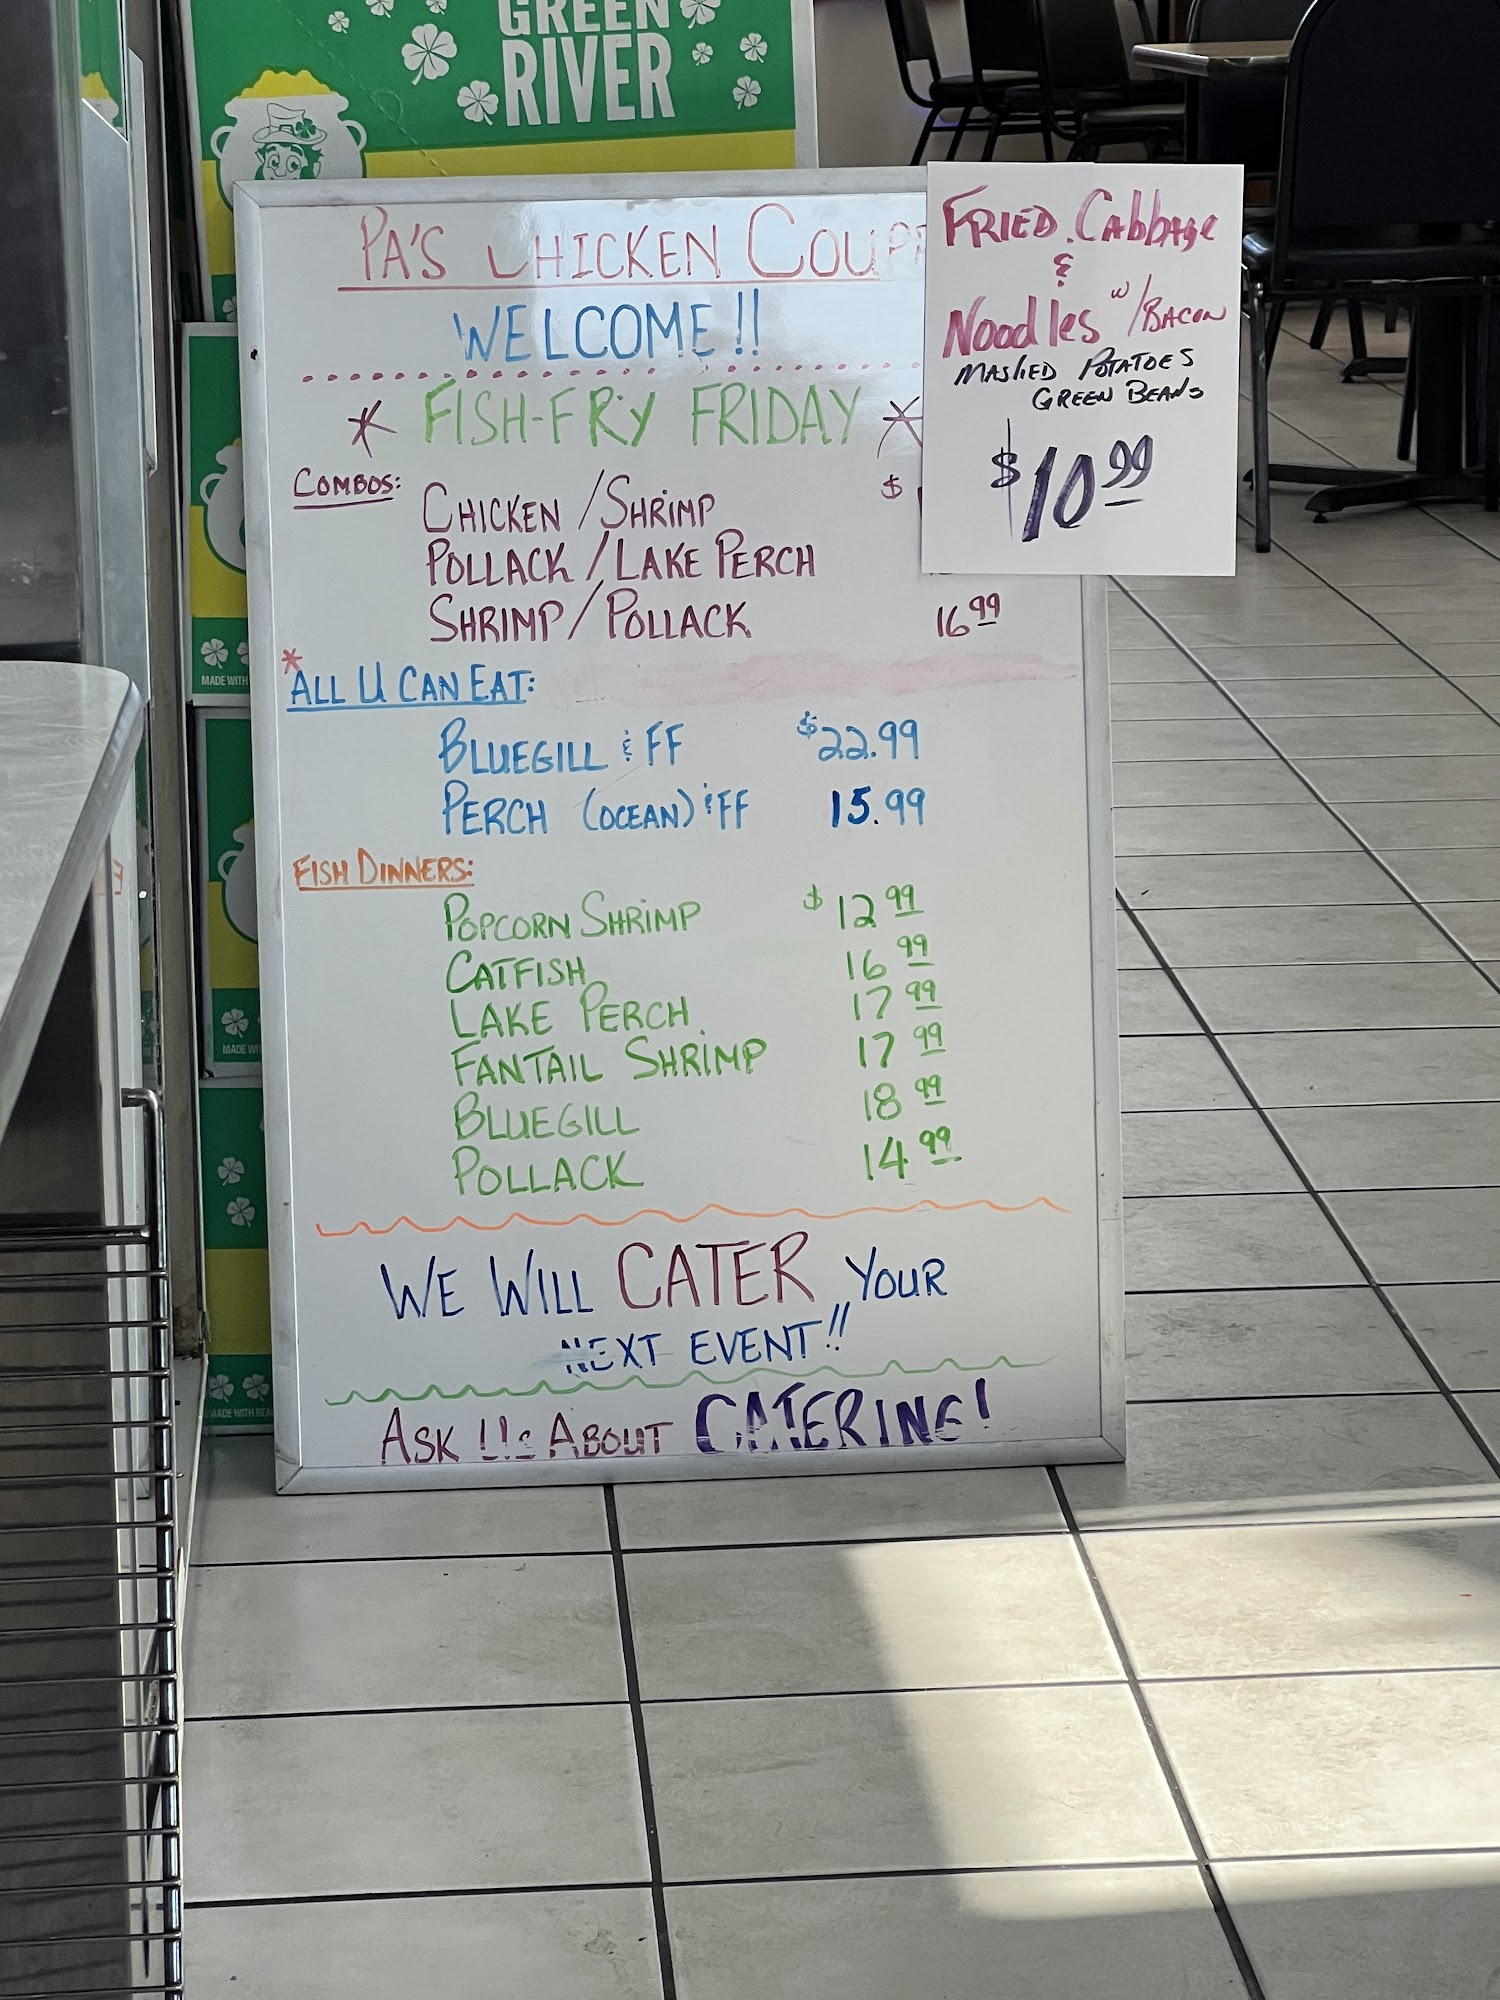 GREEN
RIVER
PA'S CHICKEN COUP
WELCOME!!
* FISH-FRY FRIDAY *
COMBOS: CHICKEN/SHRIMP $
POLLACK/LAKE PERCH
SHRIMP/POLLACK 16 99
*ALL U CAN EAT:
BLUEGILL & FF $22.99
PERCH (OCEAN) & FF 15.99
FISH DINNERS:
POPCORN SHRIMP $12 99
CATFISH 16 99
LAKE PERCH 17 99
FANTAIL SHRIMP 17 99
BLUEGILL 18 99
POLLACK 14 99
WE WILL CATER YOUR
NEXT EVENT!!
ASK US ABOUT CATERING!
FRIED CABBAGE
&
NOODLES w/BACON
MASHED POTATOES
GREEN BEANS
$10 99
MADE WITH
MADE WI
MADE WITH REA